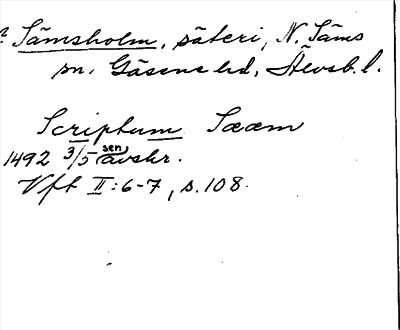 Sämsholm, säteri, N. Säms
sn. Gäsene hd, Älvsb. l.
Scriptum Sææm
1492 3/5 sen avskr.
Vft II:6-7, s. 108.